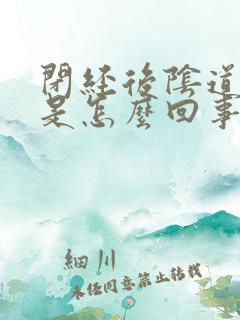 閉經後陰道
是怎麼回事
細川
未經同意禁止轉載